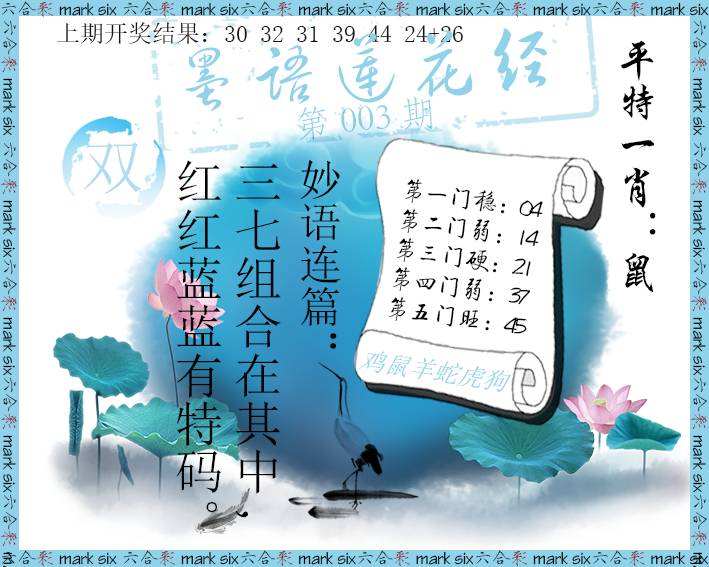 上期开奖结果：30 32 31 39 44 24+26
墨语莲花经
第 003 期
双
平特一肖：鼠
妙语连篇：
三七组合在其中，
红红蓝蓝有特码。
第一门稳：04
第二门弱：14
第三门硬：21
第四门弱：37
第五门旺：45
鸡鼠羊蛇虎狗
六合彩 mark six 六合彩 mark six 六合彩 mark six 六合彩 mark six 六合彩 mark six
六合彩 mark six 六合彩 mark six 六合彩 mark six 六合彩 mark six 六合彩 mark six